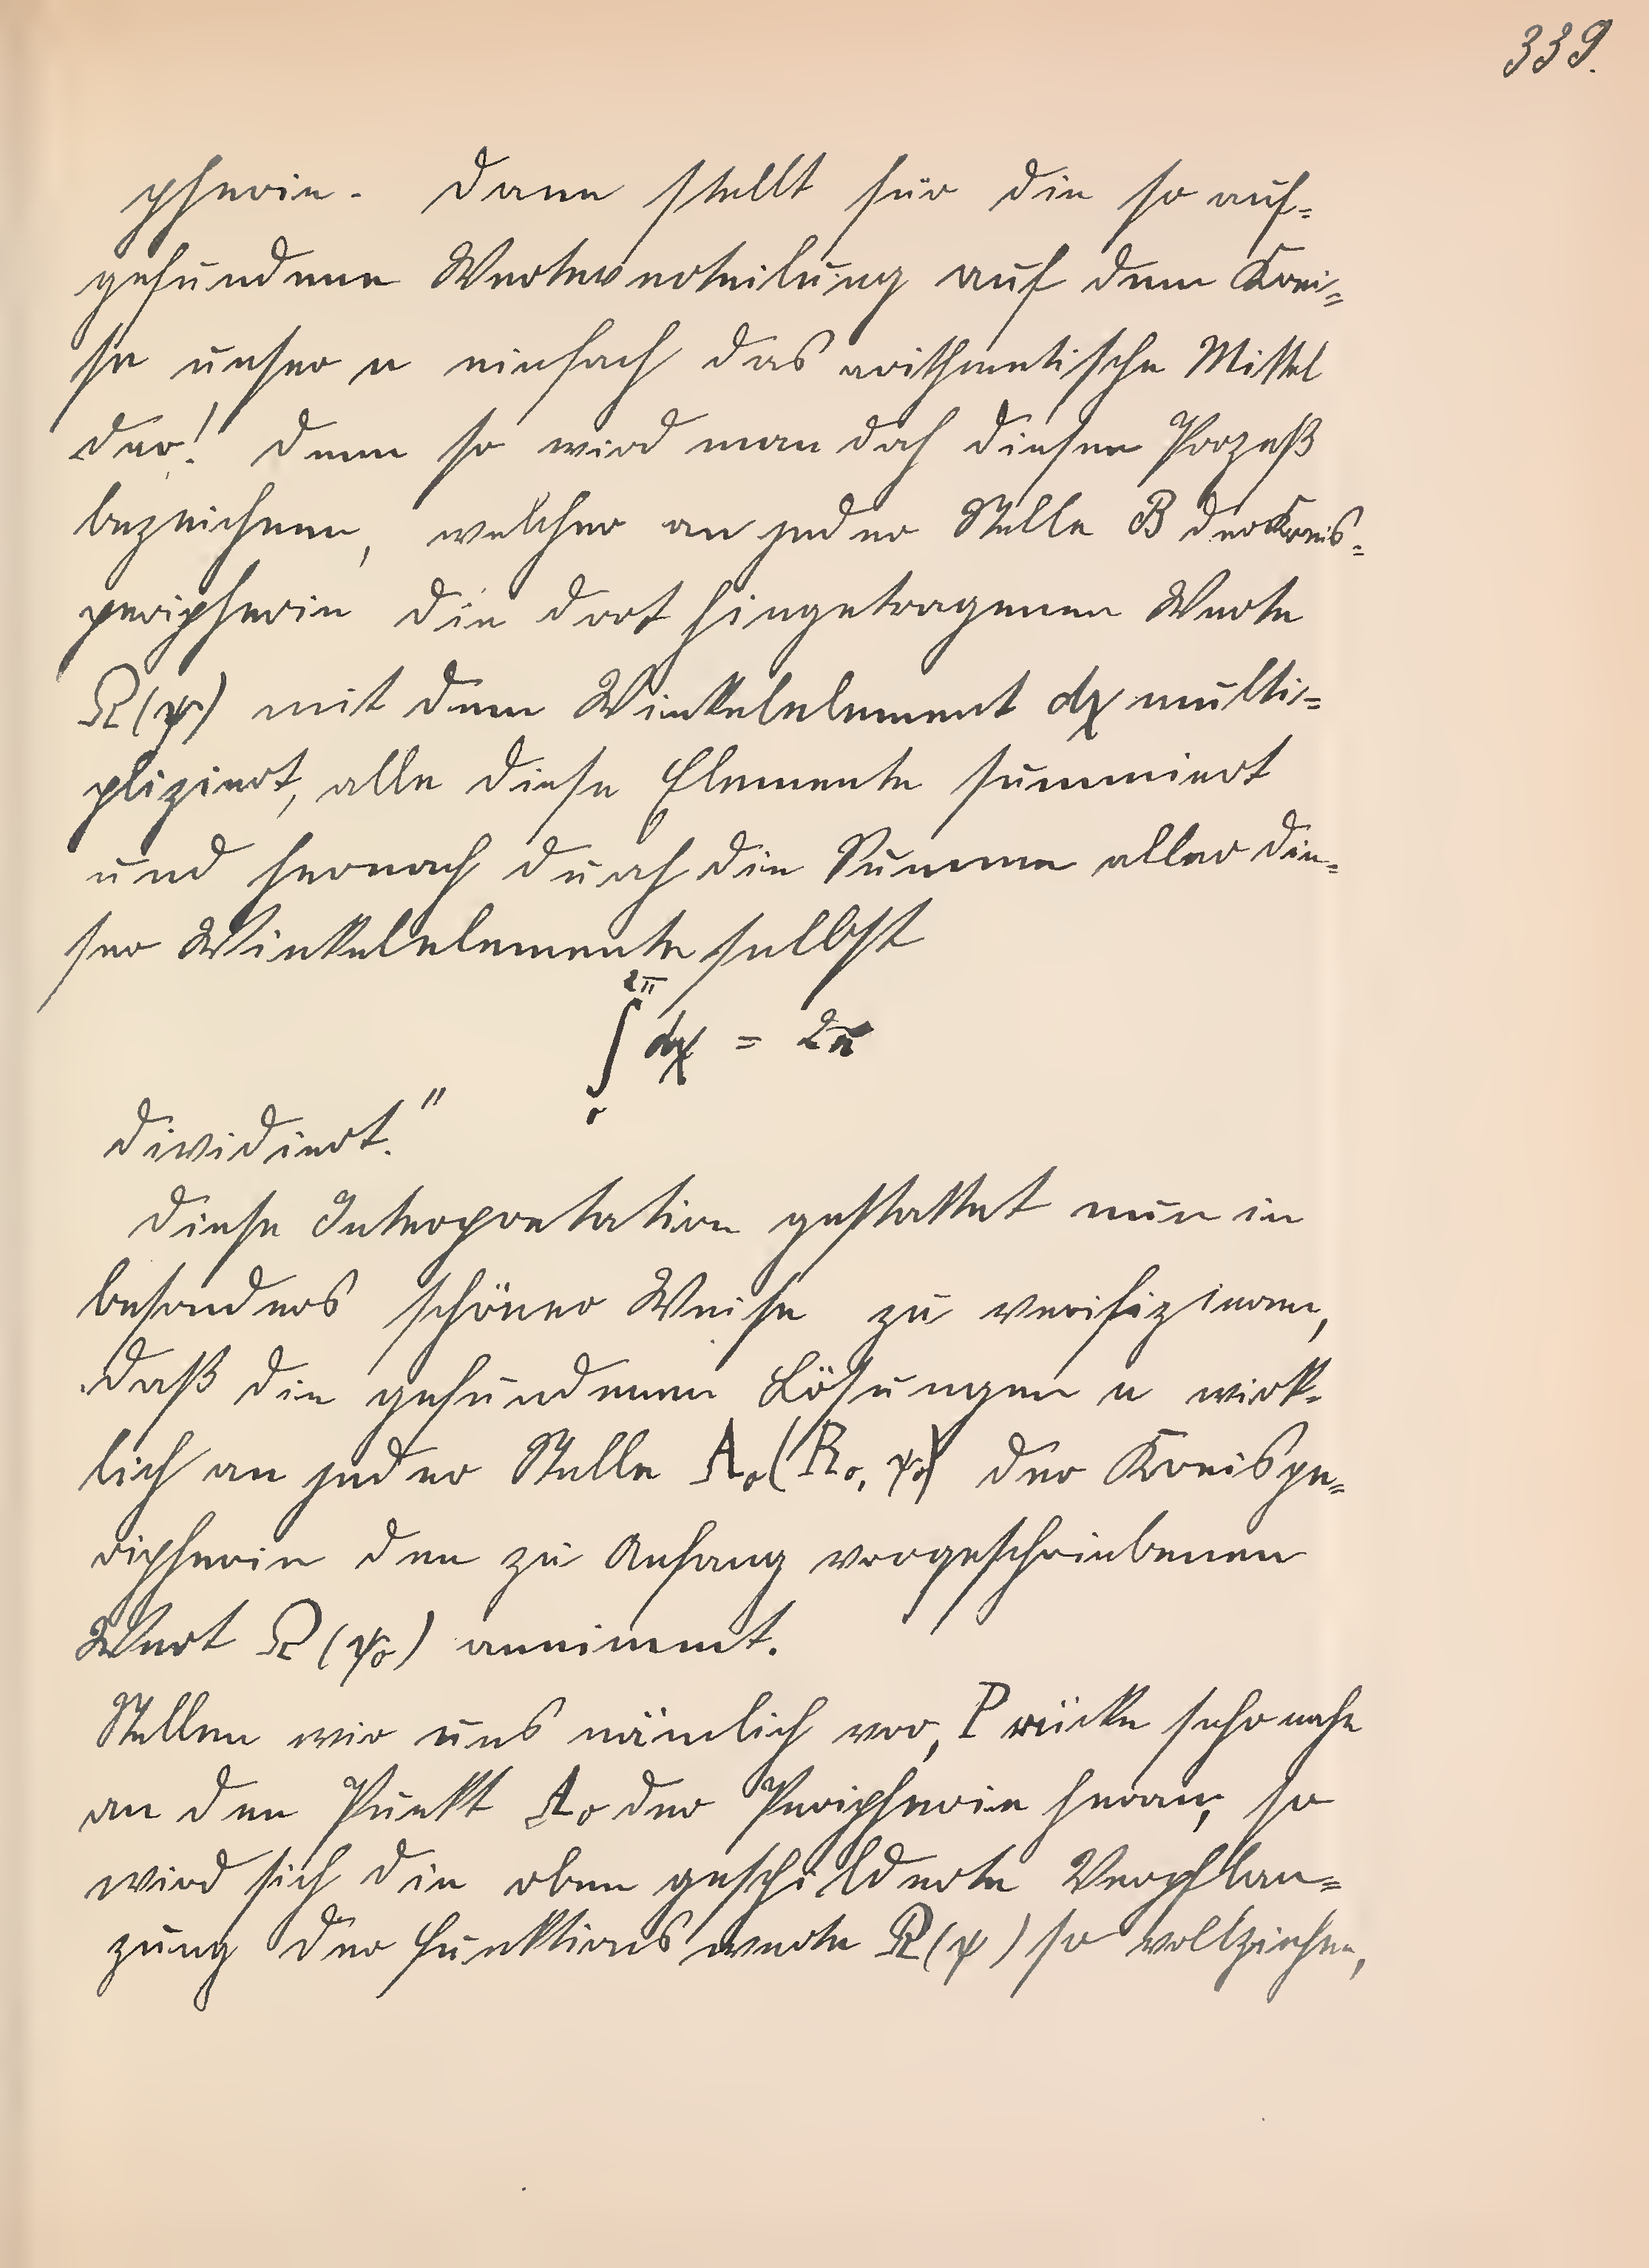 339.
pherie. Dann stellt für die so auf=
gefundene Werteverteilung auf dem Krei=
se unser u einfach das arithmetische Mittel
dar! Denn so wird man doch diesen Prozeß
bezeichnen, welcher an jeder Stelle B der Kreis=
peripherie die dort hingetragenen Werte
Ω(ψ) mit dem Winkelelement dχ multi=
pliziert, alle diese Elemente summiert
und hernach durch die Summe aller die=
ser Winkelelemente selbst
2π
∫ dχ = 2π
0
dividiert."
Diese Interpretation gestattet nun in
besonders schöner Weise zu verifizieren,
daß die gefundenen Lösungen u wirk=
lich an jeder Stelle A₀(R₀, ψ₀) der Kreispe=
ripherie den zu Anfang vorgeschriebenen
Wert Ω(ψ₀) annimmt.
Stellen wir uns nämlich vor, P rücke sehr nahe
an den Punkt A₀ der Peripherie heran, so
wird sich die oben geschilderte Verpflan=
zung der Funktionswerte Ω(ψ) so vollziehen,